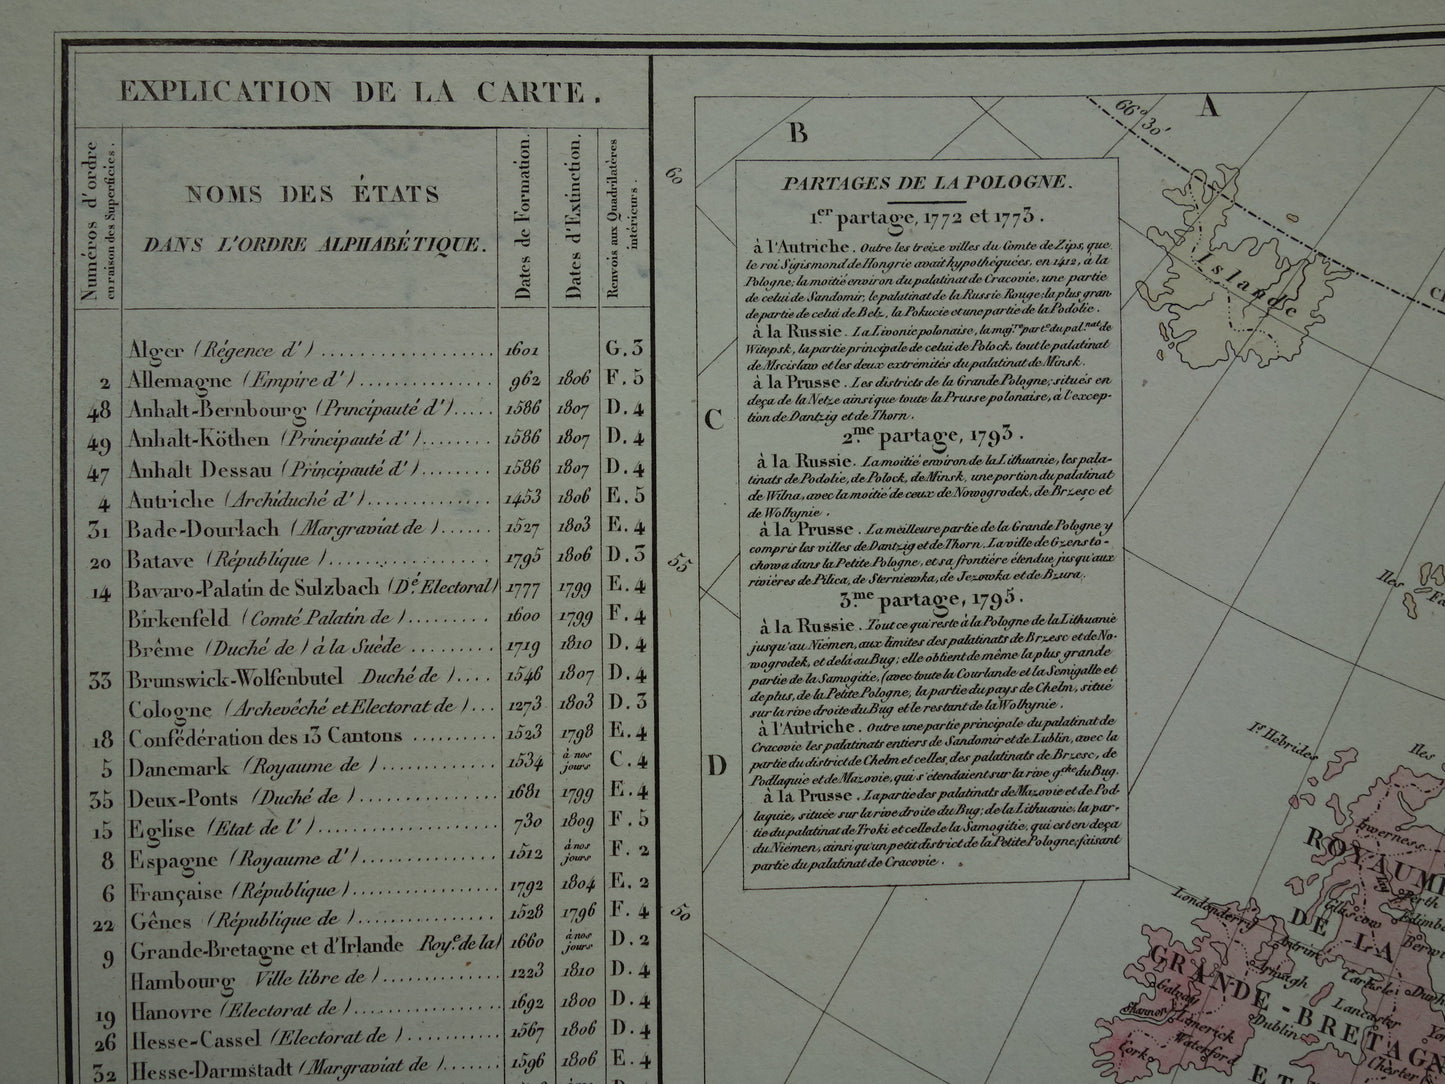 EXPLICATION DE LA CARTE.
Numéros d'ordre
en raison des Superficies.
NOMS DES ÉTATS
DANS L'ORDRE ALPHABÉTIQUE.
Dates de Formation.
Dates d'Extinction.
Renvois aux Quadrilatères
intérieurs.
Alger (Régence d') 1601 G.3
2 Allemagne (Empire d') 962 1806 F.5
48 Anhalt-Bernbourg (Principauté d') 1586 1807 D.4
49 Anhalt-Köthen (Principauté d') 1586 1807 D.4
47 Anhalt Dessau (Principauté d') 1586 1807 D.4
4 Autriche (Archiduché d') 1453 1806 E.5
31 Bade-Dourlach (Margraviat de) 1527 1803 E.4
20 Batave (République) 1795 1806 D.3
14 Bavaro-Palatin de Sulzbach (Dé. Electoral) 1777 1799 E.4
Birkenfeld (Comté Palatin de) 1600 1799 F.4
Brême (Duché de) à la Suède 1719 1810 D.4
33 Brunswick-Wolfenbutel Duché de) 1546 1807 D.4
Cologne (Archevêché et Electorat de) 1273 1803 D.3
18 Confédération des 13 Cantons 1523 1798 E.4
5 Danemark (Royaume de) 1534 à nos jours C.4
35 Deux-Ponts (Duché de) 1681 1799 E.4
15 Eglise (Etat de l') 730 1809 F.5
8 Espagne (Royaume d') 1512 à nos jours F.2
6 Française (République) 1792 1804 E.2
22 Gênes (République de) 1528 1796 F.4
9 Grande-Bretagne et d'Irlande Roye. de la) 1660 à nos jours D.2
Hambourg Ville libre de) 1223 1810 D.4
19 Hanovre (Electorat de) 1692 1800 D.4
26 Hesse-Cassel (Electorat de) 1567 1806 D.4
32 Hesse-Darmstadt (Margraviat de) 1596 1806 E.4
60
55
50
B
A
C
D
66° 30'
PARTAGES DE LA POLOGNE.
1.er partage, 1772 et 1773.
à l'Autriche. Outre les treize villes du Comte de Zips, que
le roi Sigismond de Hongrie avait hypothéquées, en 1412, à la
Pologne; la moitié environ du palatinat de Cracovie, une partie
de celui de Sandomir, le palatinat de la Russie Rouge; la plus gran
de partie de celui de Belz, la Pokucie et une partie de la Podolie.
à la Russie. La Livonie polonaise, la majre parte du pal.nat de
Witepsk, la partie principale de celui de Polock, tout le palatinat
de Mscislaw et les deux extrémités du palatinat de Minsk.
à la Prusse. Les districts de la Grande Pologne, situés en
deça de la Netze ainsi que toute la Prusse polonaise, à l'excep-
tion de Dantzig et de Thorn.
2.me partage, 1793.
à la Russie. La moitié environ de la Lithuanie, les pala-
tinats de Podolie, de Polock, de Minsk, une portion du palatinat
de Wilna, avec la moitié de ceux de Nowogrodek, de Brzesc et
de Wolhynie.
à la Prusse. La meilleure partie de la Grande Pologne y
compris les villes de Dantzig et de Thorn. La ville de Czensto-
chowa dans la Petite Pologne, et sa frontière étendue jusqu'aux
rivières de Pilica, de Sterniewka, de Jezowka et de Bzura.
3.me partage, 1795.
à la Russie. Tout ce qui reste à la Pologne de la Lithuanie
jusqu'au Niémen, aux limites des palatinats de Brzesc et de No-
wogrodek, et delà au Bug; elle obtient de même la plus grande
partie de la Samogitie, (avec toute la Courlande et la Semigalle et
de plus, de la Petite Pologne, la partie du pays de Chelm, situé
sur la rive droite du Bug et le restant de la Wolhynie.
à l'Autriche. Outre une partie principale du palatinat de
Cracovie les palatinats entiers de Sandomir et de Lublin, avec la
partie du district de Chelm et celles des palatinats de Brzesc, de
Podlaquie et de Mazovie, qui s'étendaient sur la rive gche du Bug.
à la Prusse. La partie des palatinats de Mazovie et de Pod-
laquie, située sur la rive droite du Bug; de la Lithuanie, la par-
tie du palatinat de Troki et celle de la Samogitie, qui est en deça
du Niémen, ainsi qu'un petit district de la Petite Pologne faisant
partie du palatinat de Cracovie.
Islande
Iles
Is. Hébrides
Iles
Inverness
ROYAUME
Perth
Glascow
Edimb
Berw
DE LA
Londonderry
Antrim
Armagh
Carlisle
Durh
GRANDE-BRETAGN
Galway
Shannon
Limerick
Dublin
Lancaster
Yor
Waterford
Cork
Chester
ET